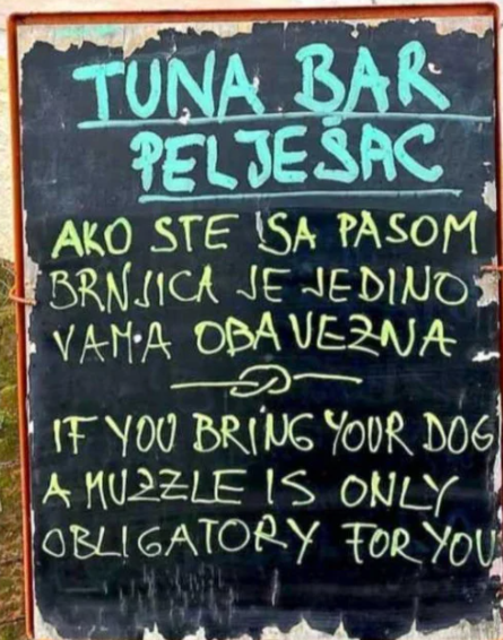 TUNA BAR
PELJEŠAC
AKO STE SA PASOM
BRNJICA JE JEDINO
VAMA OBAVEZNA
IF YOU BRING YOUR DOG
A MUZZLE IS ONLY
OBLIGATORY FOR YOU